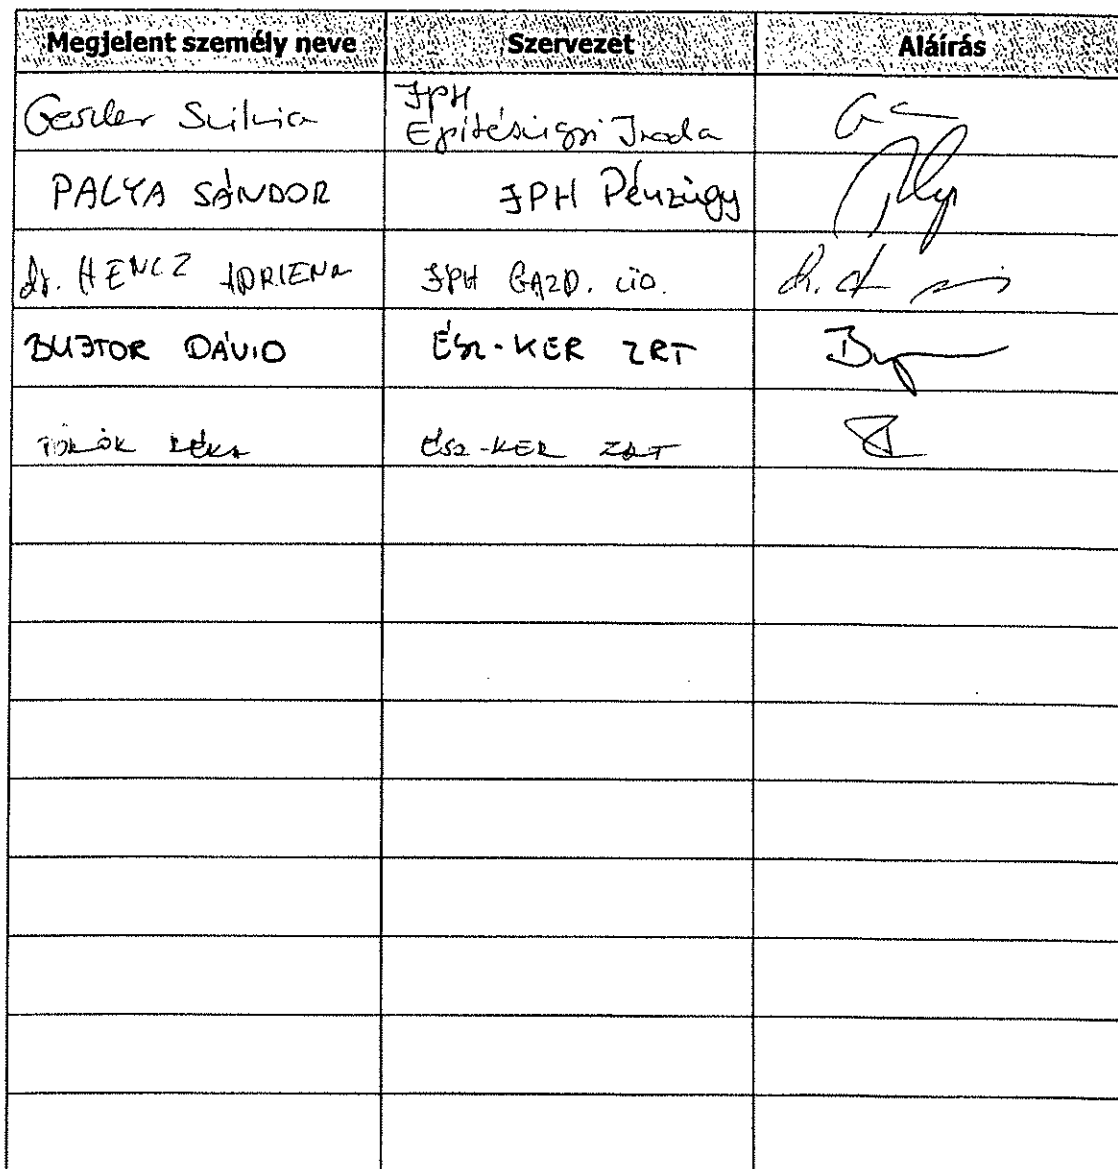 Megjelent személy neve Szervezet Aláírás
JPH
Gesler Szilvia Építésügyi Iroda
PALYA SÁNDOR JPH Pénzügy
dr. HENCZ ADRIENN JPH GAZD. ÜO.
BUJTOR DÁVID ÉSZ-KER ZRT
TÖRÖK RÉKA ÉSZ-KER ZRT